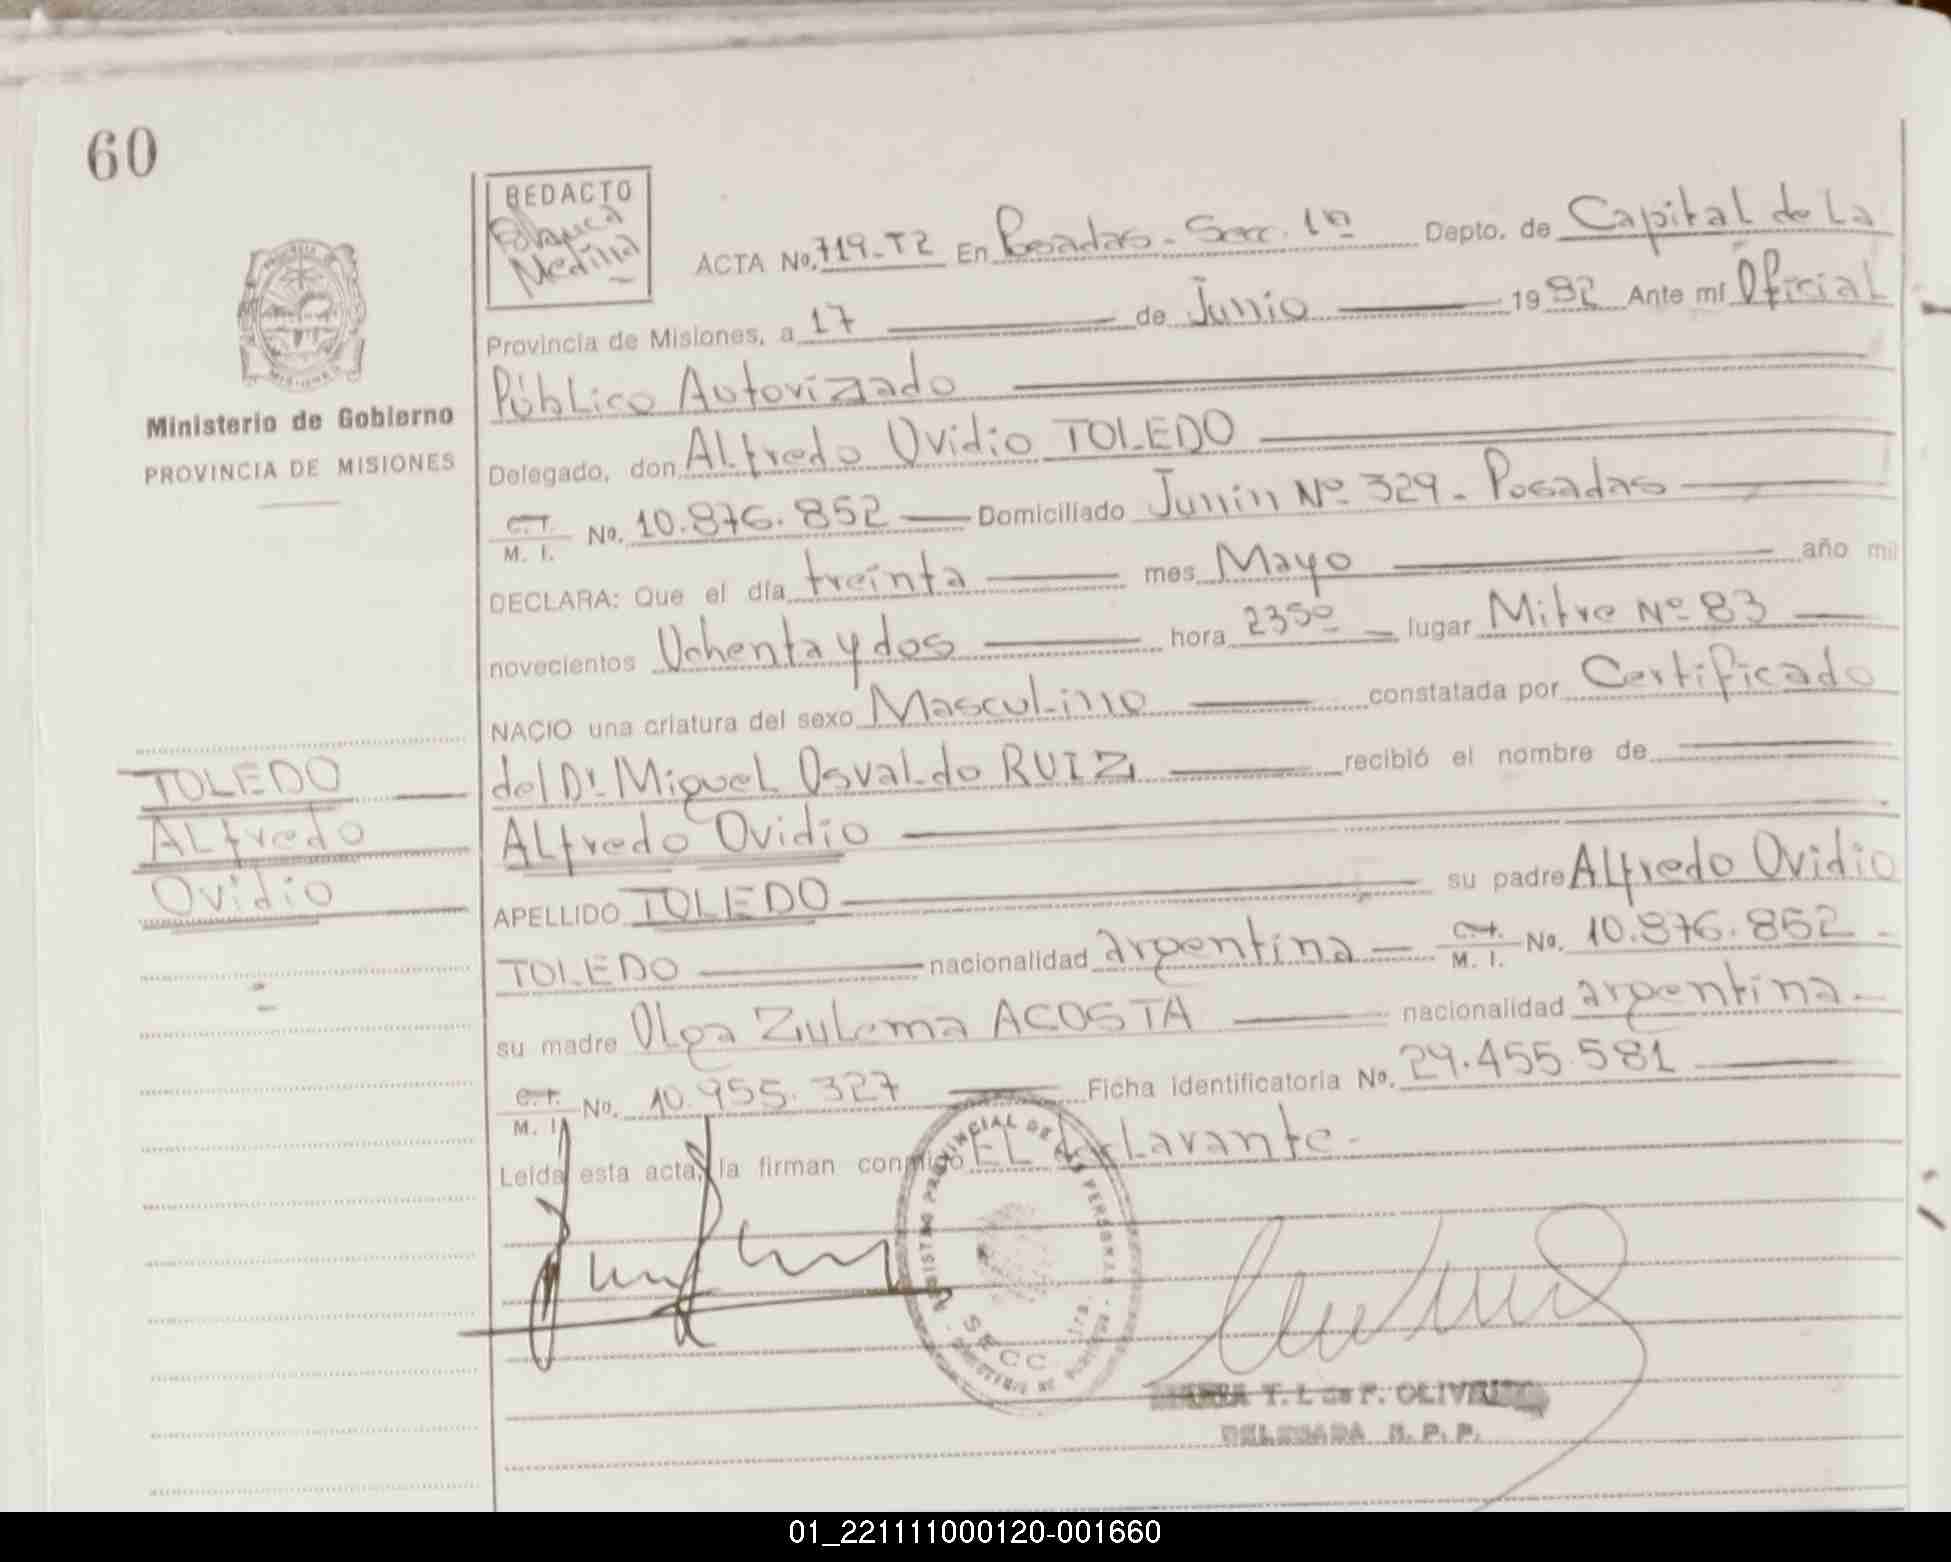 60
REDACTO
Medina
ACTA No. 719-T2 En Posadas - Secc. 1ra Depto. de Capital de La
Provincia de Misiones, a 17 de Junio 1982 Ante mí Oficial
Público Autorizado
Ministerio de Gobierno
PROVINCIA DE MISIONES
Delegado, don Alfredo Ovidio TOLEDO
C.I. M. I. No. 10.876.852 Domiciliado Junin Nº 329 - Posadas
DECLARA: Que el día treinta mes Mayo año mil
novecientos Ochenta y dos hora 2350 lugar Mitre Nº 83
NACIO una criatura del sexo Masculino constatada por Certificado
del Dr Miguel Osvaldo RUIZ recibió el nombre de
Alfredo Ovidio
APELLIDO TOLEDO su padre Alfredo Ovidio
TOLEDO nacionalidad argentina C.I. M. I. No. 10.876.852 -
su madre Olga Zulema ACOSTA nacionalidad argentina -
C.I. M. I. No. 10.955.327 Ficha identificatoria No. 29.455.581
Leída esta acta, la firman conmigo EL declarante -
TOLEDO
Alfredo
Ovidio
REGISTRO PROVINCIAL DE LAS PERSONAS
SECC. 1ra.
T. L de F. OLIVEIRA
DELEGADA R. P. P.
01_221111000120-001660